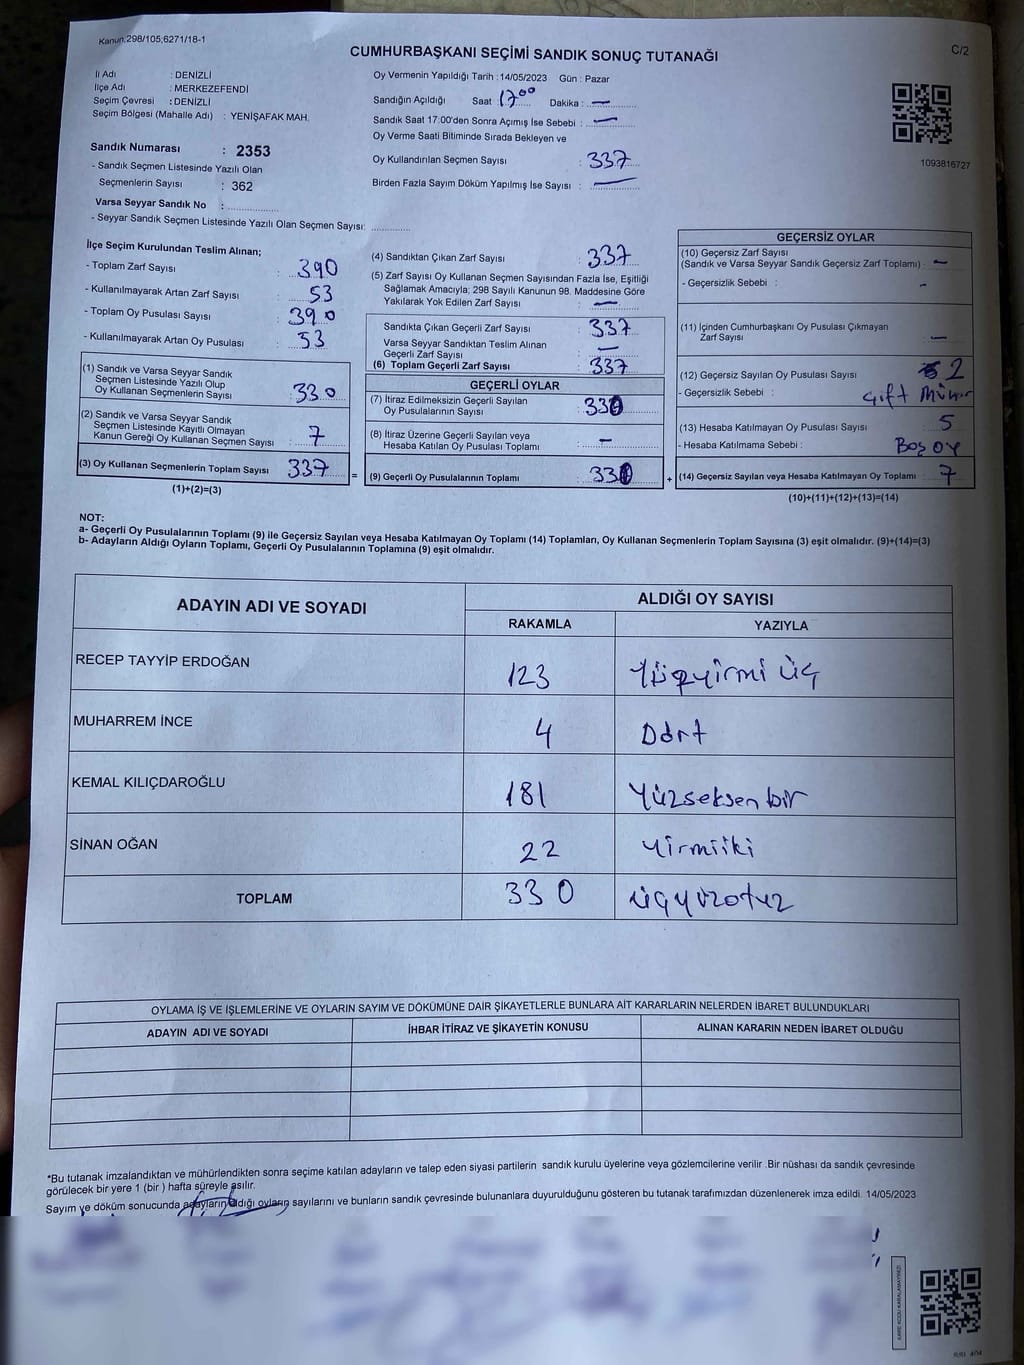 Kanun:298/105;6271/18-1
C/2
CUMHURBAŞKANI SEÇİMİ SANDIK SONUÇ TUTANAĞI
İl Adı : DENİZLİ
İlçe Adı : MERKEZEFENDİ
Seçim Çevresi : DENİZLİ
Seçim Bölgesi (Mahalle Adı) : YENİŞAFAK MAH.
Sandık Numarası : 2353
- Sandık Seçmen Listesinde Yazılı Olan
Seçmenlerin Sayısı : 362
Varsa Seyyar Sandık No :
- Seyyar Sandık Seçmen Listesinde Yazılı Olan Seçmen Sayısı:
Oy Vermenin Yapıldığı Tarih : 14/05/2023 Gün : Pazar
Sandığın Açıldığı Saat : 17 00 Dakika : —
Sandık Saat 17:00'den Sonra Açımış İse Sebebi : —
Oy Verme Saati Bitiminde Sırada Bekleyen ve
Oy Kullandırılan Seçmen Sayısı : 337
Birden Fazla Sayım Döküm Yapılmış İse Sayısı : —
1093816727
İlçe Seçim Kurulundan Teslim Alınan;
- Toplam Zarf Sayısı : 390
- Kullanılmayarak Artan Zarf Sayısı : 53
- Toplam Oy Pusulası Sayısı : 390
- Kullanılmayarak Artan Oy Pusulası : 53
(1) Sandık ve Varsa Seyyar Sandık
Seçmen Listesinde Yazılı Olup
Oy Kullanan Seçmenlerin Sayısı : 330
(2) Sandık ve Varsa Seyyar Sandık
Seçmen Listesinde Kayıtlı Olmayan
Kanun Gereği Oy Kullanan Seçmen Sayısı : 7
(3) Oy Kullanan Seçmenlerin Toplam Sayısı : 337
(1)+(2)=(3)
(4) Sandıktan Çıkan Zarf Sayısı : 337
(5) Zarf Sayısı Oy Kullanan Seçmen Sayısından Fazla İse, Eşitliği
Sağlamak Amacıyla; 298 Sayılı Kanunun 98. Maddesine Göre
Yakılarak Yok Edilen Zarf Sayısı : —
Sandıkta Çıkan Geçerli Zarf Sayısı : 337
Varsa Seyyar Sandıktan Teslim Alınan
Geçerli Zarf Sayısı : —
(6) Toplam Geçerli Zarf Sayısı : 337
GEÇERLİ OYLAR
(7) İtiraz Edilmeksizin Geçerli Sayılan
Oy Pusulalarının Sayısı : 330
(8) İtiraz Üzerine Geçerli Sayılan veya
Hesaba Katılan Oy Pusulaları Toplamı : —
= (9) Geçerli Oy Pusulalarının Toplamı : 330
GEÇERSİZ OYLAR
(10) Geçersiz Zarf Sayısı
(Sandık ve Varsa Seyyar Sandık Geçersiz Zarf Toplamı) : —
- Geçersizlik Sebebi : -
(11) İçinden Cumhurbaşkanı Oy Pusulası Çıkmayan
Zarf Sayısı : —
(12) Geçersiz Sayılan Oy Pusulası Sayısı : 2
- Geçersizlik Sebebi : Çift Mühür
(13) Hesaba Katılmayan Oy Pusulası Sayısı : 5
- Hesaba Katılmama Sebebi : Boş oy
+ (14) Geçersiz Sayılan veya Hesaba Katılmayan Oy Toplamı : 7
(10)+(11)+(12)+(13)=(14)
NOT:
a- Geçerli Oy Pusulalarının Toplamı (9) ile Geçersiz Sayılan veya Hesaba Katılmayan Oy Toplamı (14) Toplamları, Oy Kullanan Seçmenlerin Toplam Sayısına (3) eşit olmalıdır. (9)+(14)=(3)
b- Adayların Aldığı Oyların Toplamı, Geçerli Oy Pusulalarının Toplamına (9) eşit olmalıdır.
ADAYIN ADI VE SOYADI
ALDIĞI OY SAYISI
RAKAMLA YAZIYLA
RECEP TAYYİP ERDOĞAN 123 Yüzyirmi üç
MUHARREM İNCE 4 Dört
KEMAL KILIÇDAROĞLU 181 Yüzseksen bir
SİNAN OĞAN 22 Yirmiiki
TOPLAM 330 üçyüzotuz
OYLAMA İŞ VE İŞLEMLERİNE VE OYLARIN SAYIM VE DÖKÜMÜNE DAİR ŞİKAYETLERLE BUNLARA AİT KARARLARIN NELERDEN İBARET BULUNDUKLARI
ADAYIN ADI VE SOYADI İHBAR İTİRAZ VE ŞİKAYETİN KONUSU ALINAN KARARIN NEDEN İBARET OLDUĞU
*Bu tutanak imzalandıktan ve mühürlendikten sonra seçime katılan adayların ve talep eden siyasi partilerin sandık kurulu üyelerine veya gözlemcilerine verilir .Bir nüshası da sandık çevresinde
görülecek bir yere 1 (bir ) hafta süreyle asılır.
Sayım ve döküm sonucunda adayların aldığı oyların sayılarını ve bunların sandık çevresinde bulunanlara duyurulduğunu gösteren bu tutanak tarafımızdan düzenlenerek imza edildi. 14/05/2023